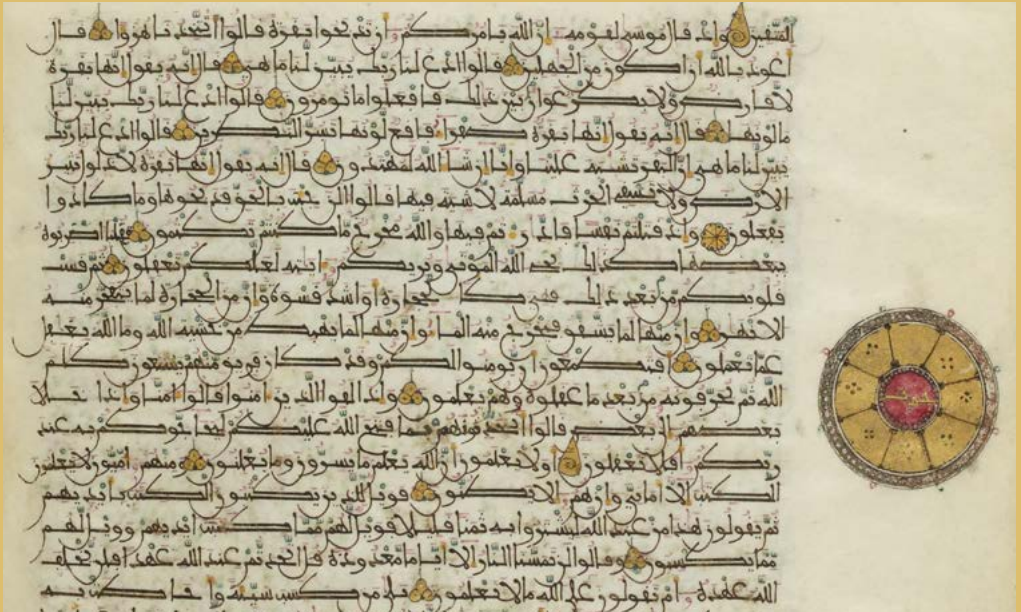 للمتقين وإذ قال موسى لقومه إن الله يامركم أن تذبحوا بقرة قالوا أتتخذنا هزؤا قال
أعوذ بالله أن أكون من الجهلين قالوا ادع لنا ربك يبين لنا ما هي قال إنه يقول إنها بقرة
لا فارض ولا بكر عوان بين ذلك فافعلوا ما تومرون قالوا ادع لنا ربك يبين لنا
ما لونها قال إنه يقول إنها بقرة صفراء فاقع لونها تسر النظرين قالوا ادع لنا ربك
يبين لنا ما هي إن البقر تشبه علينا وإنا إن شاء الله لمهتدون قال إنه يقول إنها بقرة لا ذلول تثير
الأرض ولا تسقي الحرث مسلمة لا شية فيها قالوا الن جئت بالحق فذبحوها وما كادوا
يفعلون وإذ قتلتم نفسا فادارأتم فيها والله مخرج ما كنتم تكتمون فقلنا اضربوه
ببعضها كذلك يحي الله الموتى ويريكم ءايته لعلكم تعقلون ثم قست
قلوبكم من بعد ذلك فهي كالحجارة أو أشد قسوة وإن من الحجارة لما يتفجر منه
الأنهر وإن منها لما يشقق فيخرج منه الماء وإن منها لما يهبط من خشية الله وما الله بغفل
عما تعملون أفتطمعون أن يومنوا لكم وقد كان فريق منهم يسمعون كلم
الله ثم يحرفونه من بعد ما عقلوه وهم يعلمون وإذا لقوا الذين ءامنوا قالوا ءامنا وإذا خلا
بعضهم إلى بعض قالوا أتحدثونهم بما فتح الله عليكم ليحاجوكم به عند
ربكم أفلا تعقلون أولا يعلمون أن الله يعلم ما يسرون وما يعلنون ومنهم أميون لا يعلمون
الكتب إلا أماني وإن هم إلا يظنون فويل للذين يكتبون الكتب بأيديهم
ثم يقولون هذا من عند الله ليشتروا به ثمنا قليلا فويل لهم مما كتبت أيديهم وويل لهم
مما يكسبون وقالوا لن تمسنا النار إلا أياما معدودة قل أتخذتم عند الله عهدا فلن يخلف
الله عهده أم تقولون على الله ما لا تعلمون بلى من كسب سيئة وأحاطت به